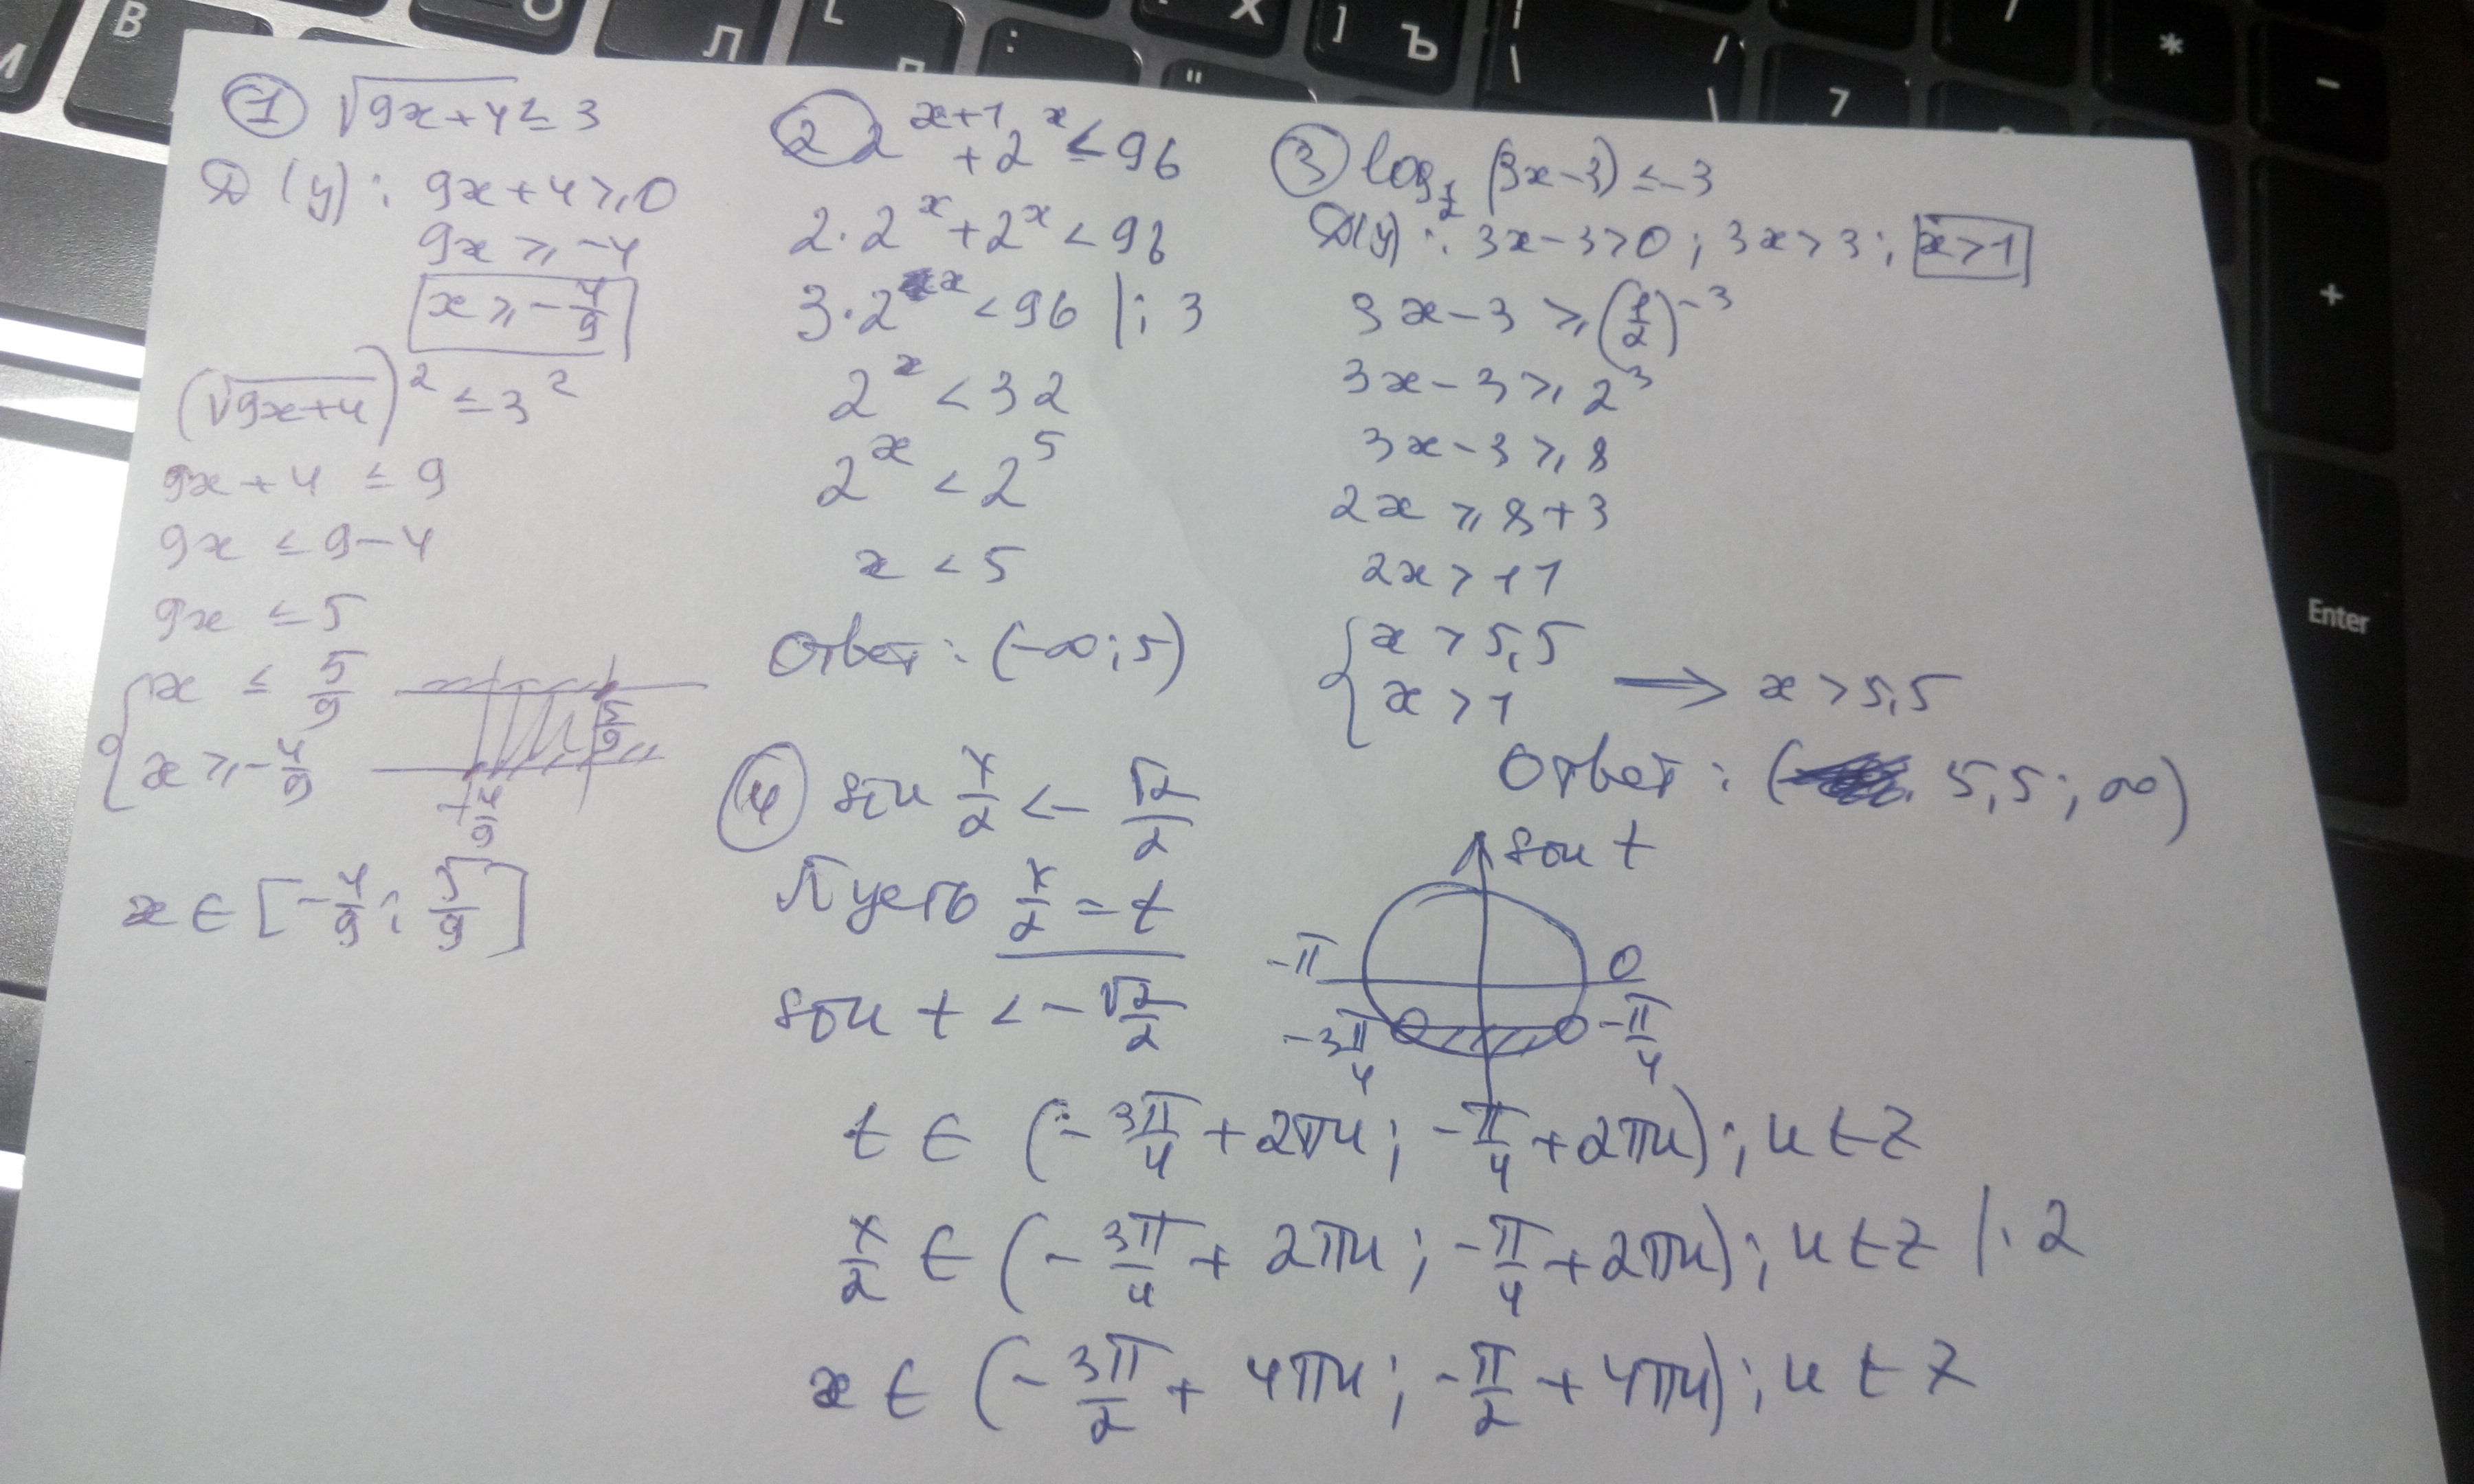 В
О
Л
П
Х
] Ъ
7
*
-
+
Enter
① √(9x+4) ≤ 3
D(y): 9x+4 ⩾ 0
9x ⩾ -4
x ⩾ -4/9
(√(9x+4))² ≤ 3²
9x+4 ≤ 9
9x ≤ 9-4
9x ≤ 5
{ x ≤ 5/9
x ⩾ -4/9
5/9
-4/9
x ∈ [-4/9; 5/9]
② 2^(x+1) + 2^x < 96
2·2^x + 2^x < 96
3·2^x < 96 |: 3
2^x < 32
2^x < 2^5
x < 5
Ответ: (-∞; 5)
③ log_(1/2) (3x-3) ≤ -3
D(y): 3x-3>0; 3x>3; x>1
3x-3 ⩾ (1/2)^(-3)
3x-3 ⩾ 2³
3x-3 ⩾ 8
2x ⩾ 8+3
2x > 11
{ x > 5,5
x > 1
⟹ x > 5,5
Ответ: ( 5,5; ∞)
④ sin x/2 < - √2/2
Пусть x/2 = t
sin t < - √2/2
sin t
-π
0
-3π/4
-π/4
t ∈ (-3π/4 + 2πn; -π/4 + 2πn); n ∈ Z
x/2 ∈ (-3π/4 + 2πn; -π/4 + 2πn); n ∈ Z |· 2
x ∈ (-3π/2 + 4πn; -π/2 + 4πn); n ∈ Z